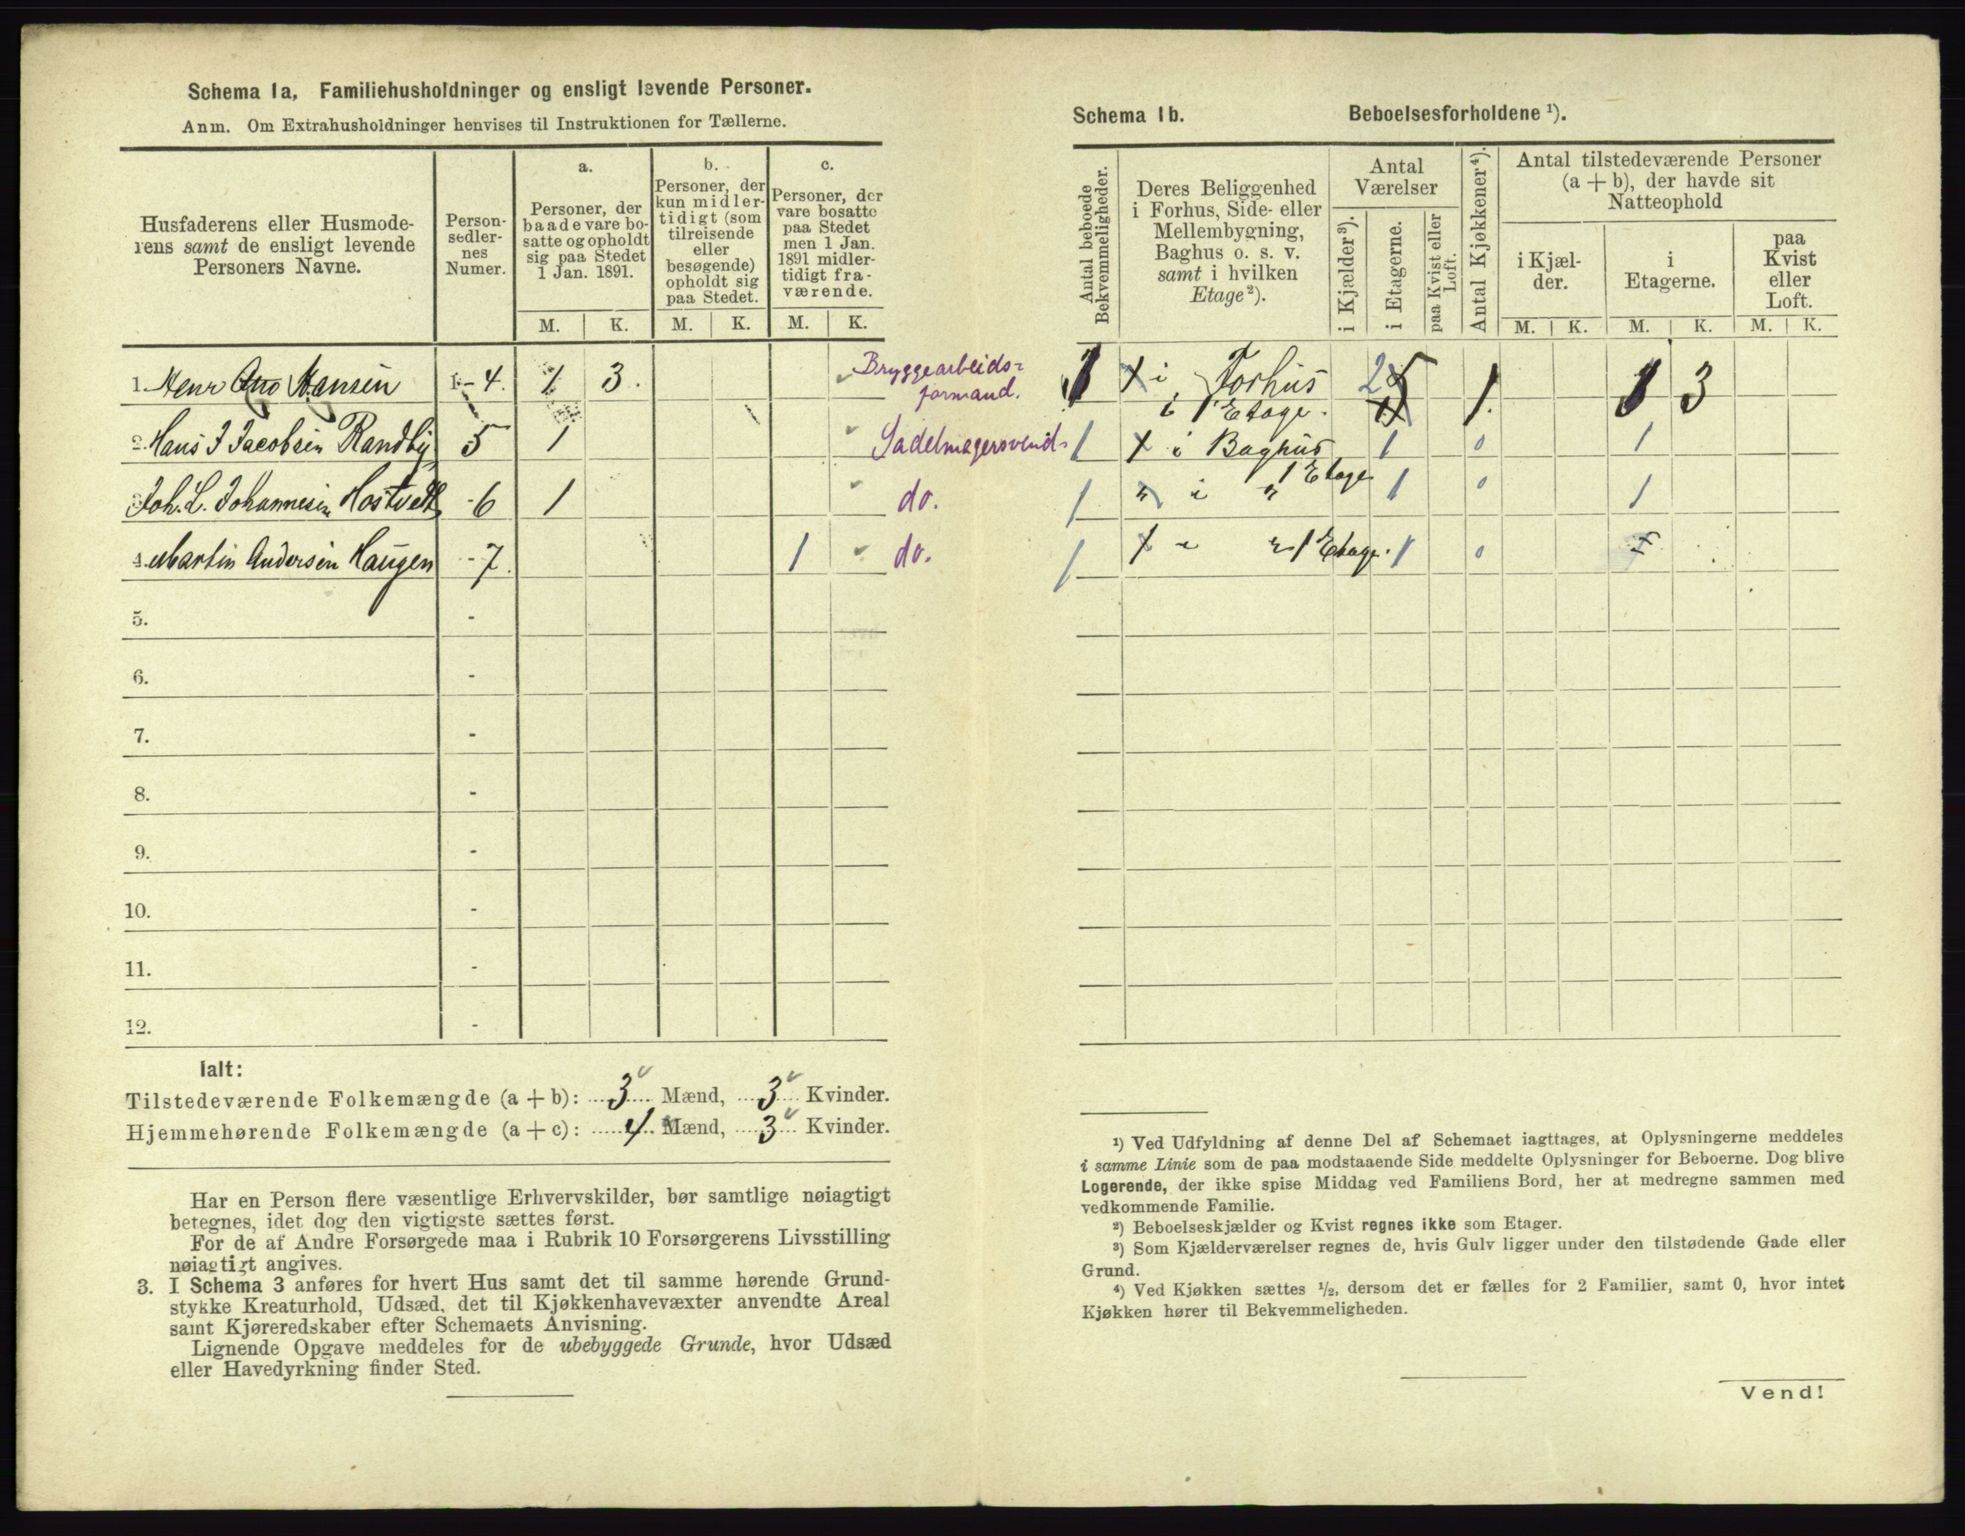 Schema 1a. Familiehusholdninger og ensligt levende Personer.
Anm. Om Extrahusholdninger henvises til Instruktionen for Tællerne.
Husfaderens eller Husmode-
rens samt de ensligt levende
Personers Navne.
Person-
sedler-
nes
Numer.
a.
Personer, der
baade vare bo-
satte og opholdt
sig paa Stedet
1 Jan. 1891.
b.
Personer, der
kun midler-
tidigt (som
tilreisende
eller
besøgende)
opholdt sig
paa Stedet.
c.
Personer, der
vare bosatte
paa Stedet
men 1 Jan.
1891 midler-
tidigt fra-
værende.
M. K. M. K. M. K.
1. Henr Hansen 1-4. 1 3. Bryggearbeids-
formand.
2. Hans J Jacobsen Randby 5 1 Sadelmagersvend
3. Joh. L. Johannesen Hostvedt -6 1 do.
4. Martin Andersen Haugen -7. 1 do.
5. -
6. -
7. -
8. -
9. -
10. -
11. -
12. -
Ialt:
Tilstedeværende Folkemængde (a + b): 3 Mænd, 3 Kvinder.
Hjemmehørende Folkemængde (a + c): 4 Mænd, 3 Kvinder.
Har en Person flere væsentlige Erhvervskilder, bør samtlige nøiagtigt
betegnes, idet dog den vigtigste sættes først.
For de af Andre Forsørgede maa i Rubrik 10 Forsørgerens Livsstilling
nøiagtigt angives.
3. I Schema 3 anføres for hvert Hus samt det til samme hørende Grund-
stykke Kreaturhold, Udsæd, det til Kjøkkenhavevæxter anvendte Areal
samt Kjøreredskaber efter Schemaets Anvisning.
Lignende Opgave meddeles for de ubebyggede Grunde, hvor Udsæd
eller Havedyrkning finder Sted.
Schema 1b. Beboelsesforholdene ¹).
Antal beboede
Bekvemmeligheder.
Deres Beliggenhed
i Forhus, Side- eller
Mellembygning,
Baghus o. s. v.
samt i hvilken
Etage²).
Antal
Værelser
i Kjælder³).
i Etagerne.
paa Kvist eller
Loft.
Antal Kjøkkener⁴).
Antal tilstedeværende Personer
(a + b), der havde sit
Natteophold
i Kjæl-
der.
i
Etagerne.
paa
Kvist
eller
Loft.
M. K. M. K. M. K.
1 i Forhus 2 1. 1 3
i 1 Etage.
1 i Baghus 1 0 1
1 Etage
1 " i " 1 0 1
1 " 1 Etage. 1 0
¹) Ved Udfyldning af denne Del af Schemaet iagttages, at Oplysningerne meddeles
i samme Linie som de paa modstaaende Side meddelte Oplysninger for Beboerne. Dog blive
Logerende, der ikke spise Middag ved Familiens Bord, her at medregne sammen med
vedkommende Familie.
²) Beboelseskjælder og Kvist regnes ikke som Etager.
³) Som Kjælderværelser regnes de, hvis Gulv ligger under den tilstødende Gade eller
Grund.
⁴) Ved Kjøkken sættes ½, dersom det er fælles for 2 Familier, samt 0, hvor intet
Kjøkken hører til Bekvemmeligheden.
Vend!